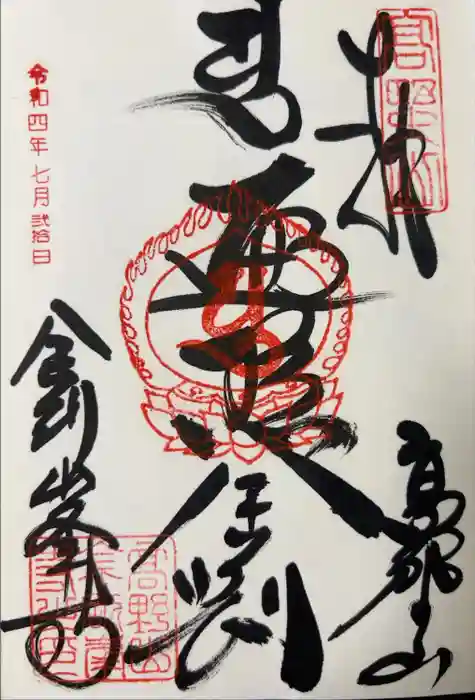 奉拝
高野山
高野山
遍照金剛
金剛峯寺
令和四年七月弐拾日
高野山